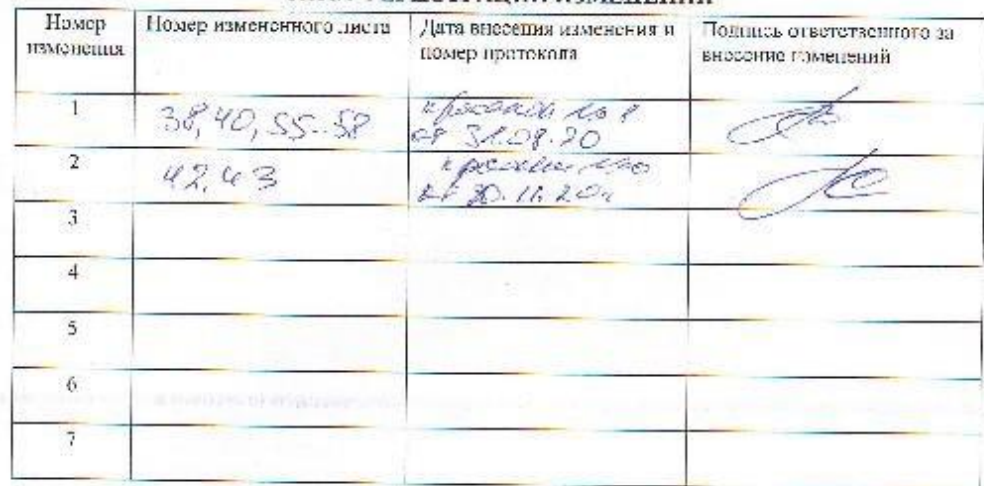 ЛИСТ РЕГИСТРАЦИИ ИЗМЕНЕНИЙ
Номер изменения
Номер измененного листа
Дата внесения изменения и номер протокола
Подпись ответственного за внесение изменений
1
38, 40, 55-58
протокол № 1
от 31.08.20
2
42, 43
протокол
от 30.11.20г
3
4
5
6
7